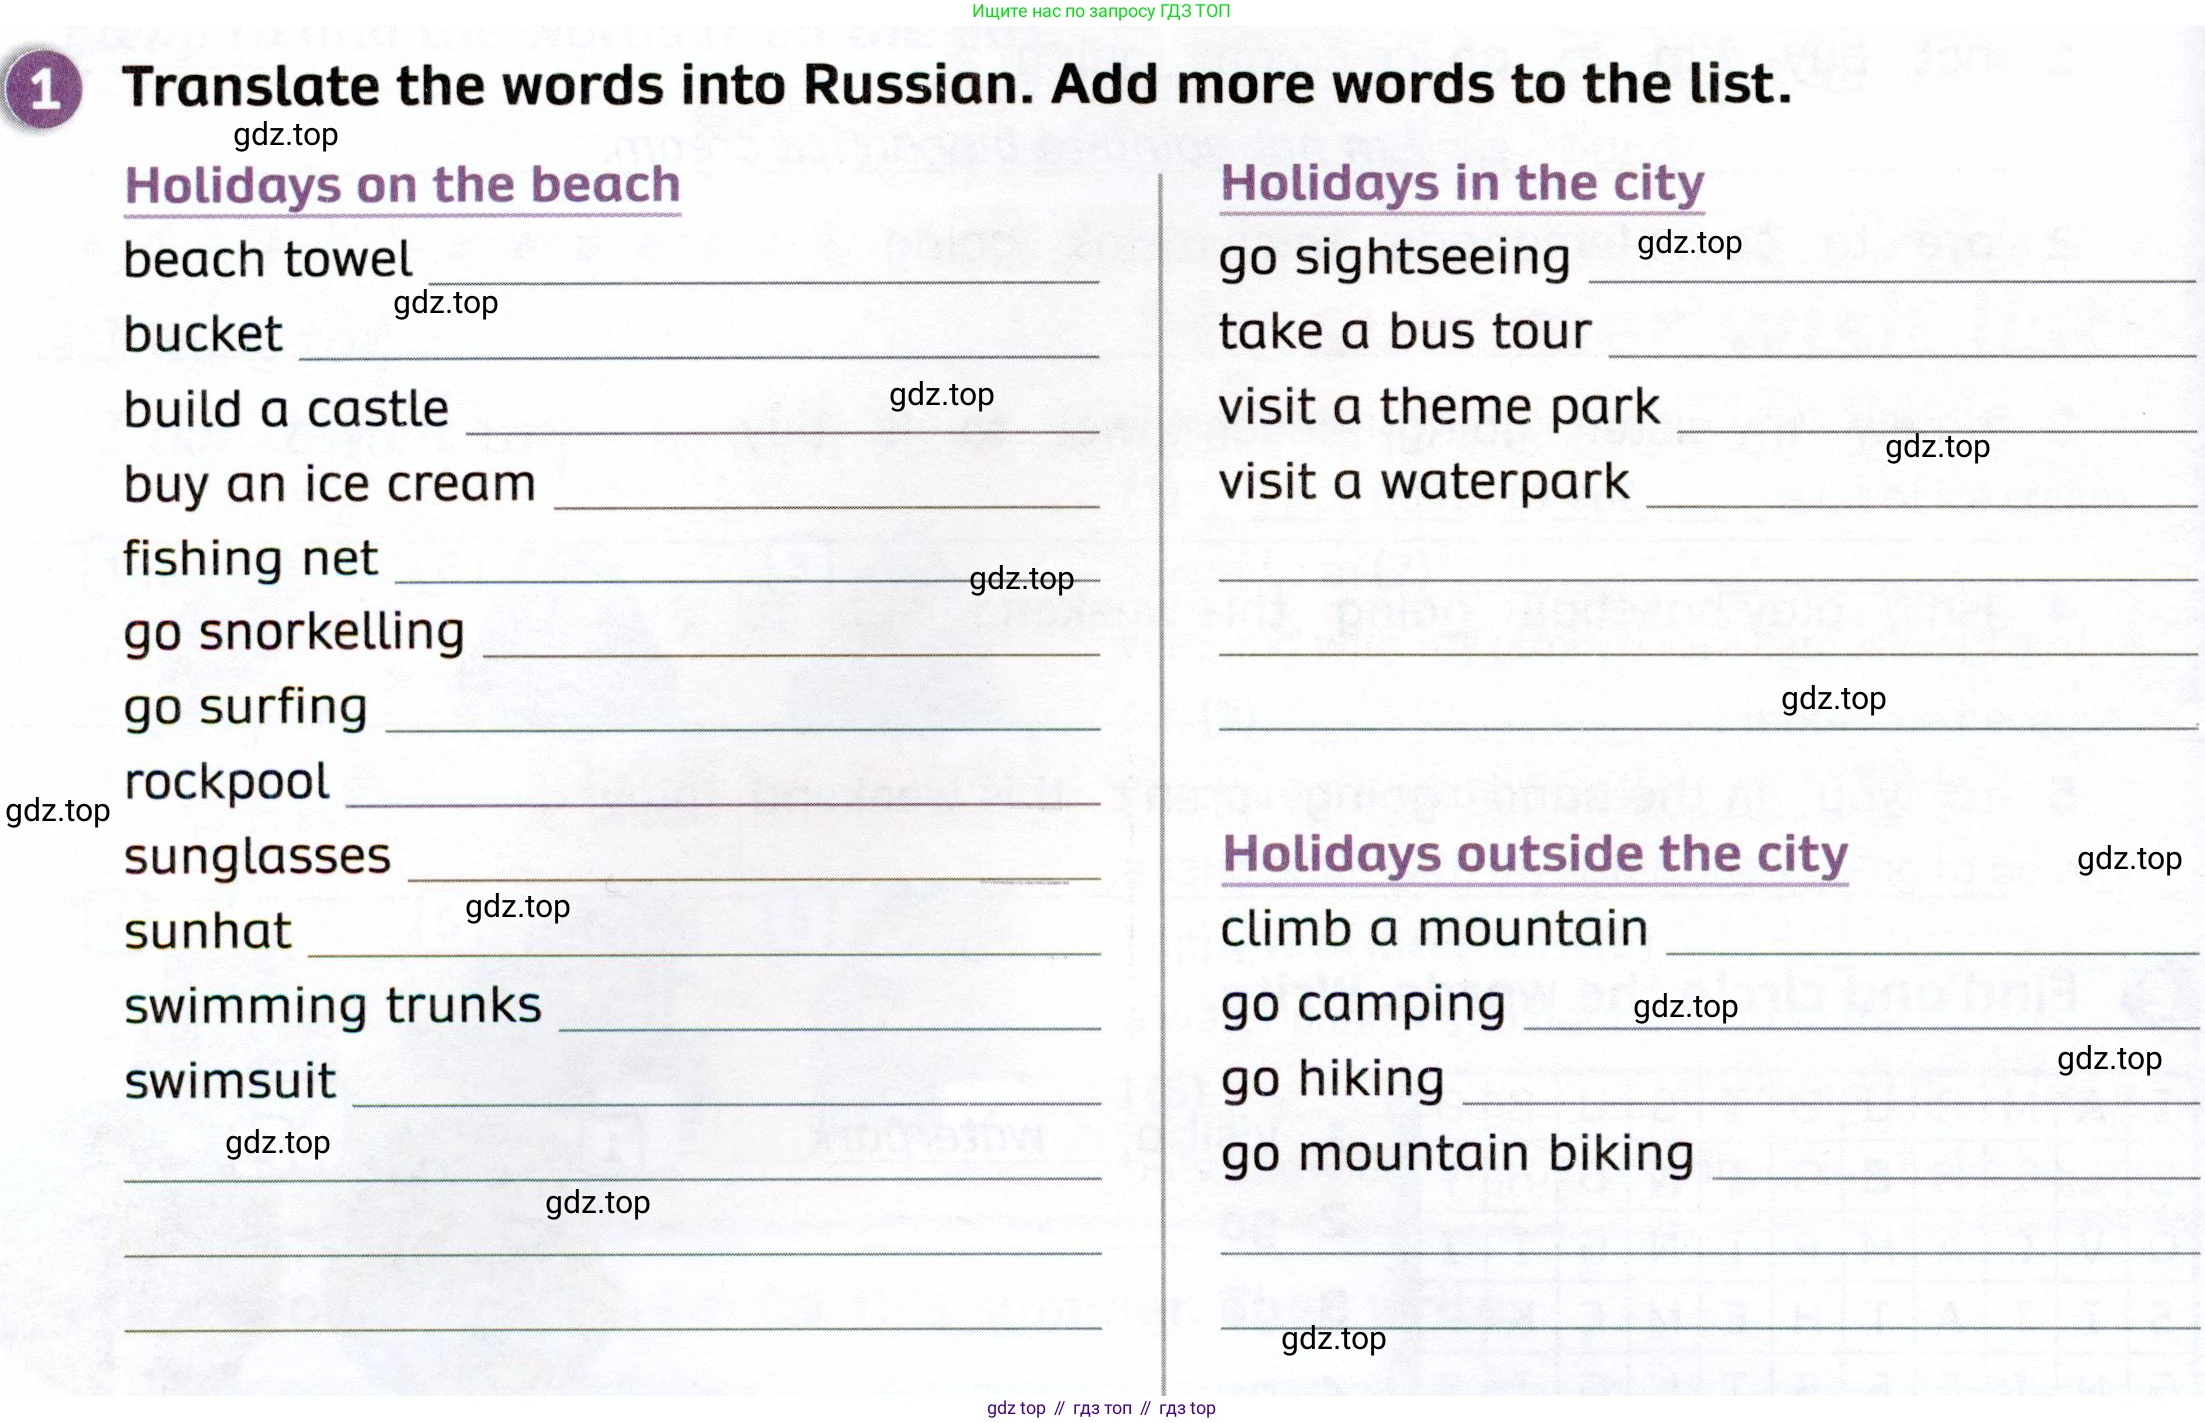 Ищите нас по запросу ГДЗ ТОП
1 Translate the words into Russian. Add more words to the list.
gdz.top
Holidays on the beach
beach towel
gdz.top
bucket
build a castle
gdz.top
buy an ice cream
fishing net
gdz.top
go snorkelling
go surfing
rockpool
gdz.top
sunglasses
gdz.top
sunhat
swimming trunks
swimsuit
gdz.top
gdz.top
Holidays in the city
go sightseeing
gdz.top
take a bus tour
visit a theme park
gdz.top
visit a waterpark
gdz.top
Holidays outside the city
gdz.top
climb a mountain
go camping
gdz.top
gdz.top
go hiking
go mountain biking
gdz.top
gdz top // гдз топ // гдз top